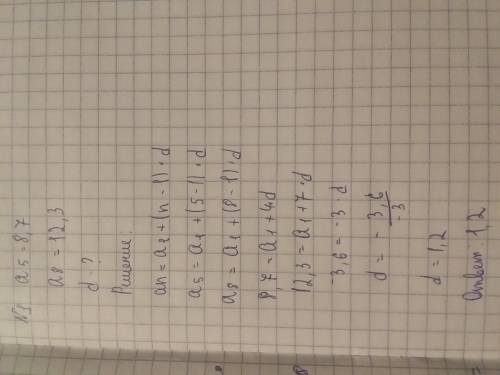 №1 a5 = 8,7
a8 = 12,3
d - ?
Решение.
an = a1 + (n - 1) · d
a5 = a1 + (5 - 1) · d
a8 = a1 + (8 - 1) · d
8,7 = a1 + 4d
12,3 = a1 + 7 · d
-3,6 = -3 · d
d = -3,6/-3
d = 1,2
Ответ: 1,2